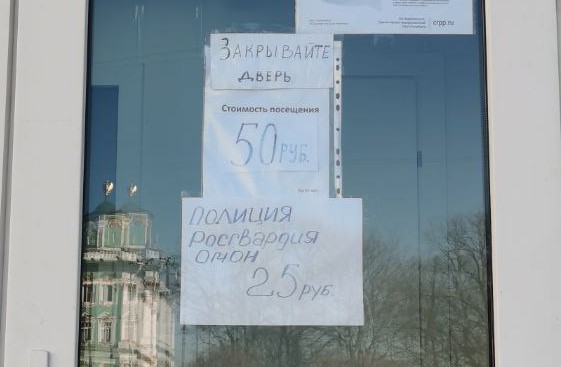 crpp.ru
ЗАКРЫВАЙТЕ
ДВЕРЬ
Стоимость посещения
50 РУБ.
ПОЛИЦИЯ
РОСГВАРДИЯ
ОМОН
25 РУБ.